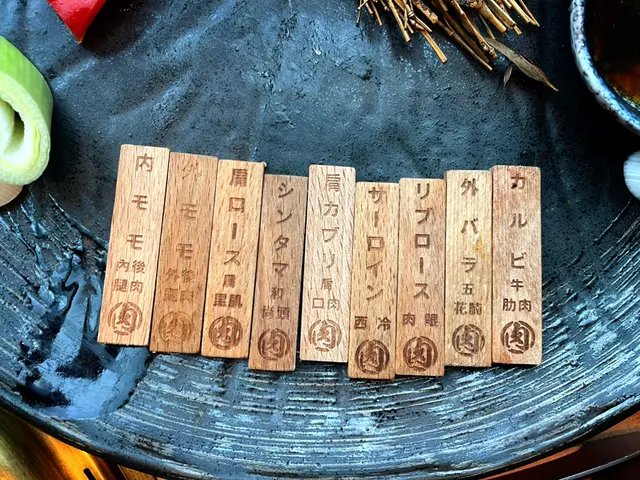 内モモ
内腿
後肉
肉
外モモ
外
後肉
肉
肩ロース
肩肌
里
肉
シンタマ
和尚頭
肉
肩カブリ
肩肉
口
肉
サーロイン
西冷
肉
リブロース
肉眼
肉
外バラ
五花腩
肉
カルビ
牛肋肉
肉